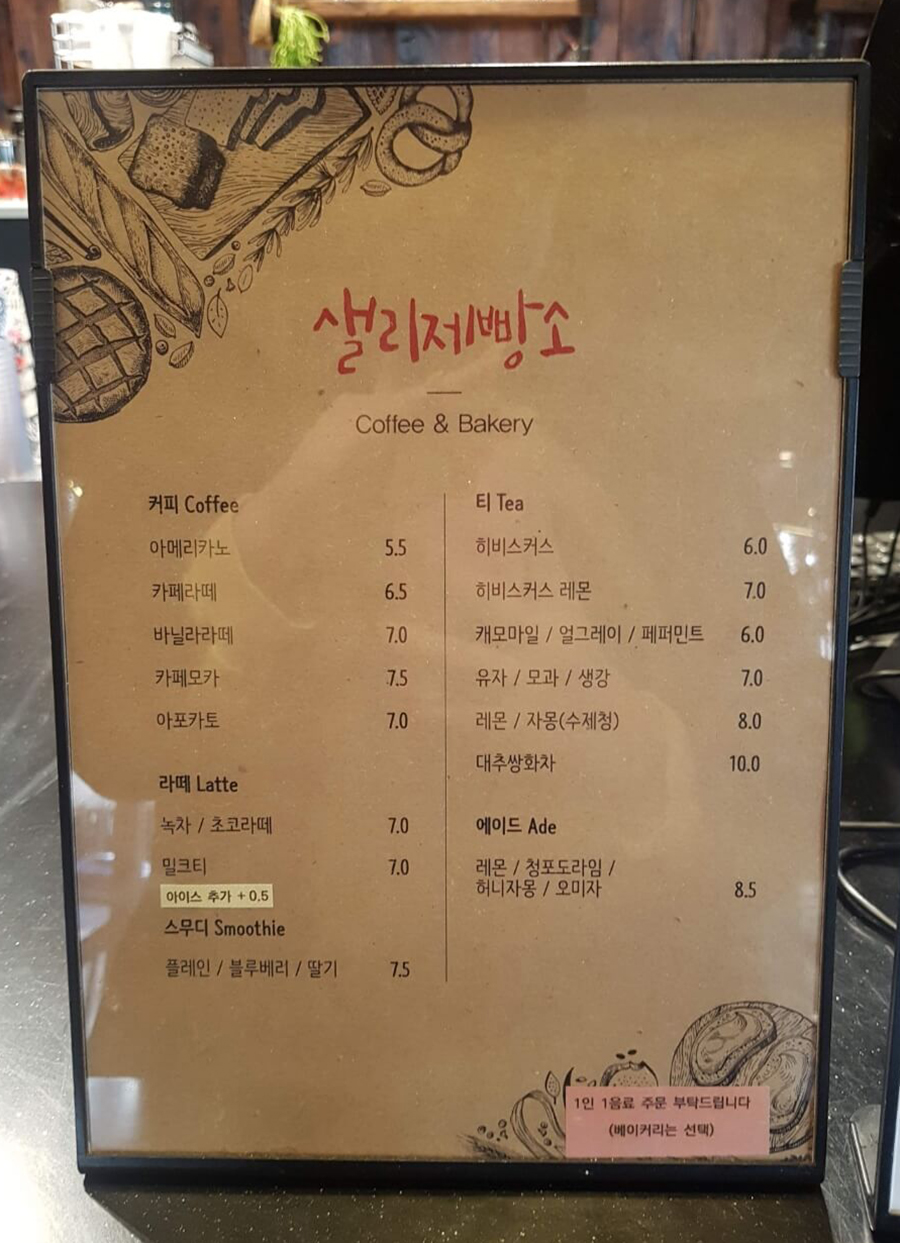 샐리제빵소
Coffee & Bakery
커피 Coffee
아메리카노 5.5
카페라떼 6.5
바닐라라떼 7.0
카페모카 7.5
아포카토 7.0
라떼 Latte
녹차 / 초코라떼 7.0
밀크티 7.0
아이스 추가 + 0.5
스무디 Smoothie
플레인 / 블루베리 / 딸기 7.5
티 Tea
히비스커스 6.0
히비스커스 레몬 7.0
캐모마일 / 얼그레이 / 페퍼민트 6.0
유자 / 모과 / 생강 7.0
레몬 / 자몽(수제청) 8.0
대추쌍화차 10.0
에이드 Ade
레몬 / 청포도라임 /
허니자몽 / 오미자 8.5
1인 1음료 주문 부탁드립니다
(베이커리는 선택)